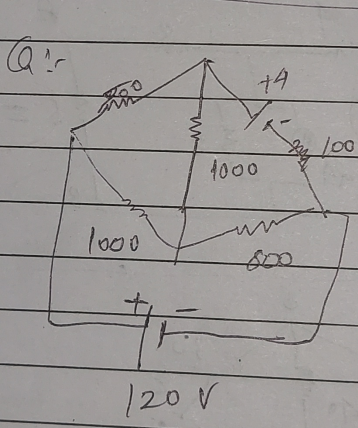 Q:-
+4
-
100
1000
1000
800
+ -
120 V